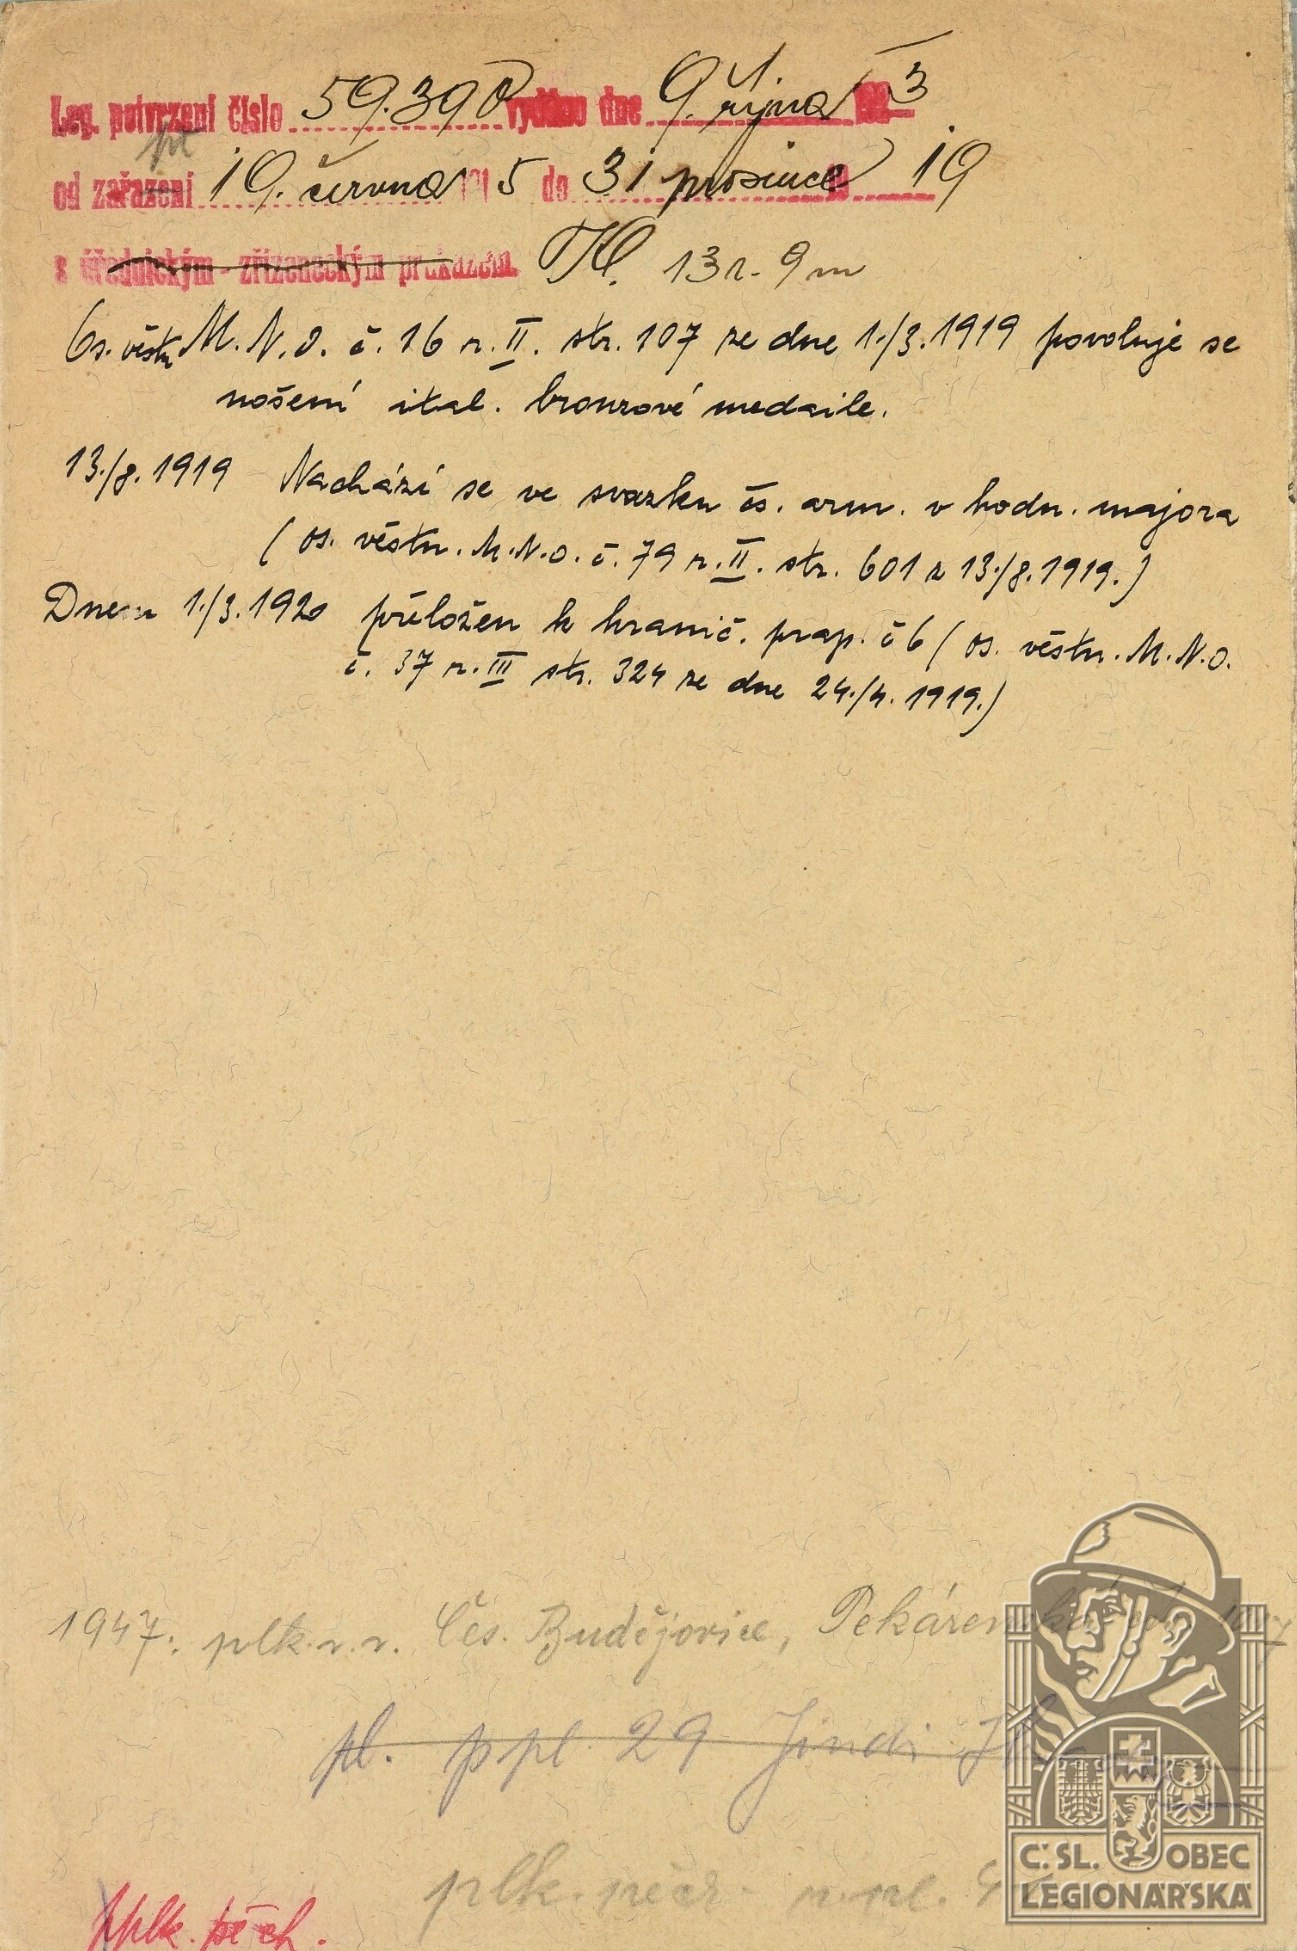 Leg. potvrzení číslo 59.390 vydáno dne 9. října 3
od zařazení 19. června 191 5 do 31 prosince 19
s úřednickým - zřízeneckým průkazem. 13 r. 9 m
Os. věstn. M.N.O. č. 16 r. II. str. 107 ze dne 1./3. 1919 povoluje se
nošení ital. bronzové medaile.
13./8. 1919 Nachází se ve svazku čs. arm. v hodn. majora
(os. věstn. M.N.O. č. 79 r. II. str. 601 z 13./8. 1919.)
Dnem 1./3. 1920 přeložen k hranič. prap. č 6 (os. věstn. M.N.O.
č. 37 r. III str. 324 ze dne 24./4. 1919.)
1947. plk. v. v. Čes. Budějovice,
pl. ppl. 29 Jindř.
plk.
pplk. pěch.
Č.SL. OBEC
LEGIONÁŘSKÁ